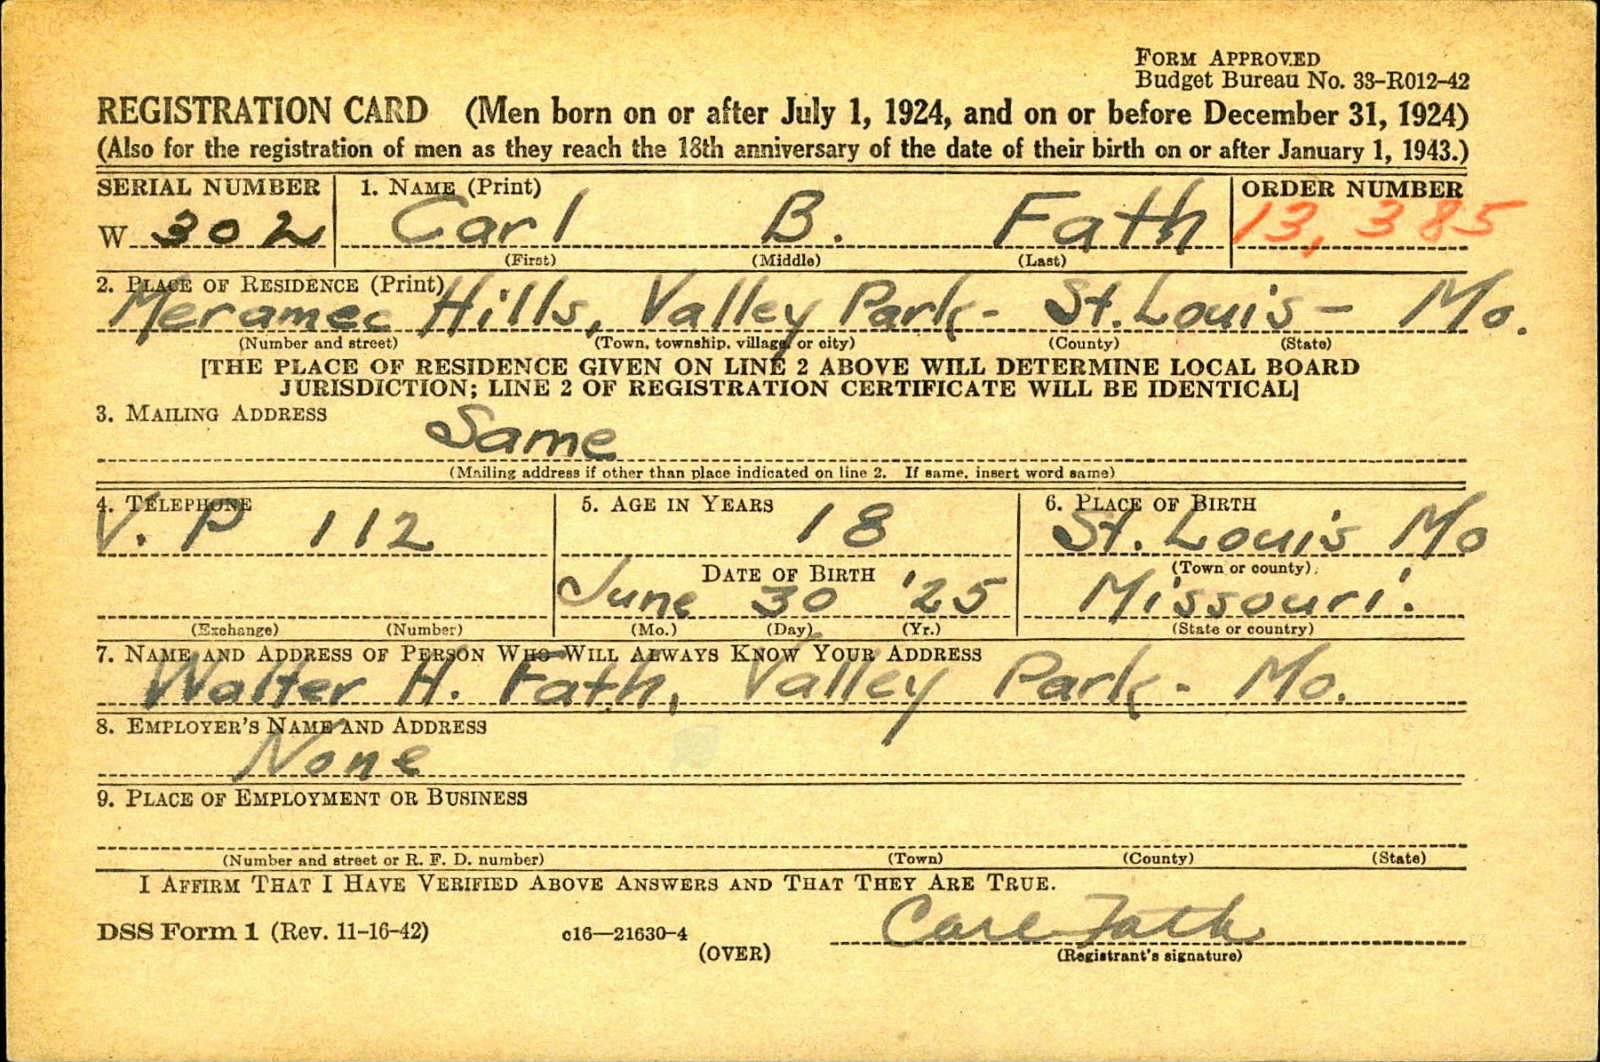 FORM APPROVED
Budget Bureau No. 33-R012-42
REGISTRATION CARD (Men born on or after July 1, 1924, and on or before December 31, 1924)
(Also for the registration of men as they reach the 18th anniversary of the date of their birth on or after January 1, 1943.)
SERIAL NUMBER 1. NAME (Print) ORDER NUMBER
W 302 Carl B. Fath 13,385
(First) (Middle) (Last)
2. PLACE OF RESIDENCE (Print)
Meramec Hills, Valley Park - St. Louis - Mo.
(Number and street) (Town, township, village, or city) (County) (State)
[THE PLACE OF RESIDENCE GIVEN ON LINE 2 ABOVE WILL DETERMINE LOCAL BOARD
JURISDICTION; LINE 2 OF REGISTRATION CERTIFICATE WILL BE IDENTICAL]
3. MAILING ADDRESS
Same
(Mailing address if other than place indicated on line 2. If same, insert word same)
4. TELEPHONE 5. AGE IN YEARS 6. PLACE OF BIRTH
V. P 112 18 St. Louis Mo
DATE OF BIRTH (Town or county)
June 30 '25 Missouri.
(Exchange) (Number) (Mo.) (Day) (Yr.) (State or country)
7. NAME AND ADDRESS OF PERSON WHO WILL ALWAYS KNOW YOUR ADDRESS
Walter H. Fath, Valley Park - Mo.
8. EMPLOYER'S NAME AND ADDRESS
None
9. PLACE OF EMPLOYMENT OR BUSINESS
(Number and street or R. F. D. number) (Town) (County) (State)
I AFFIRM THAT I HAVE VERIFIED ABOVE ANSWERS AND THAT THEY ARE TRUE.
Carl Fath
DSS Form 1 (Rev. 11-16-42) c16—21630-4 (OVER) (Registrant's signature)